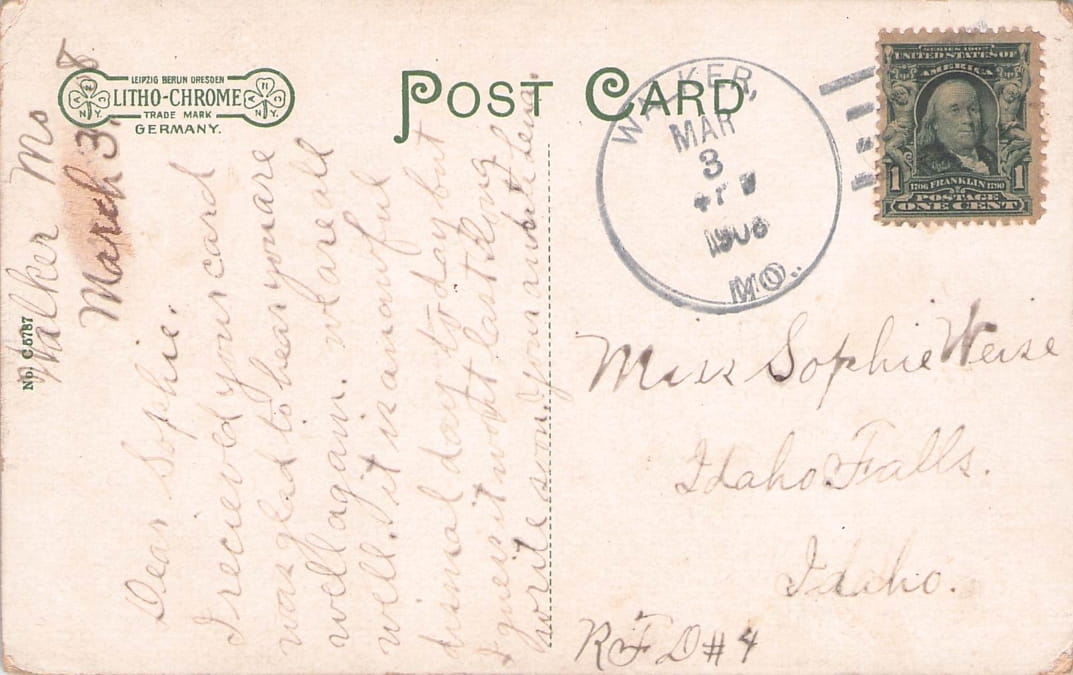 LEIPZIG BERLIN DRESDEN
LITHO-CHROME
TRADE MARK
GERMANY.
A N C
N.Y.
A N C
N.Y.
No. C5787
POST CARD
WALKER,
MAR
3
1908
MO.
SERIES 1902
UNITED STATES OF
AMERICA
1 1
1706 FRANKLIN 1790
POSTAGE
ONE CENT
Walker Mo
March 3, 8
Dear Sophie.
I recieved your card
was glad to hear you are
well again. we are all
well. it is an awful
dismal day to day but
I guess it wont last long
write soon, your aunt
Miss Sophie Weise
Idaho Falls.
Idaho.
RFD #4